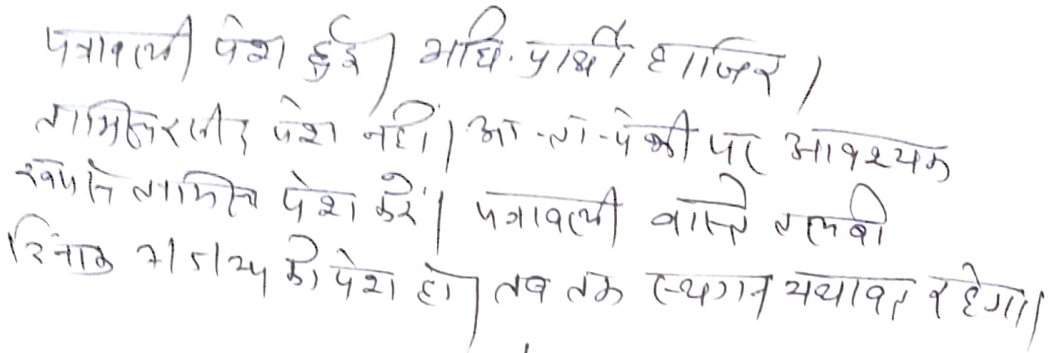 पत्रावली पेश हुई। अधि. प्रार्थी हाजिर।
तामिल रसीद पेश नहीं। आ-ता-पेशी पर आवश्यक
रूप से तामिल पेश करें। पत्रावली वास्ते तलबी
दिनांक 7/5/24 को पेश हो। तब तक स्थगन यथावत रहेगा।